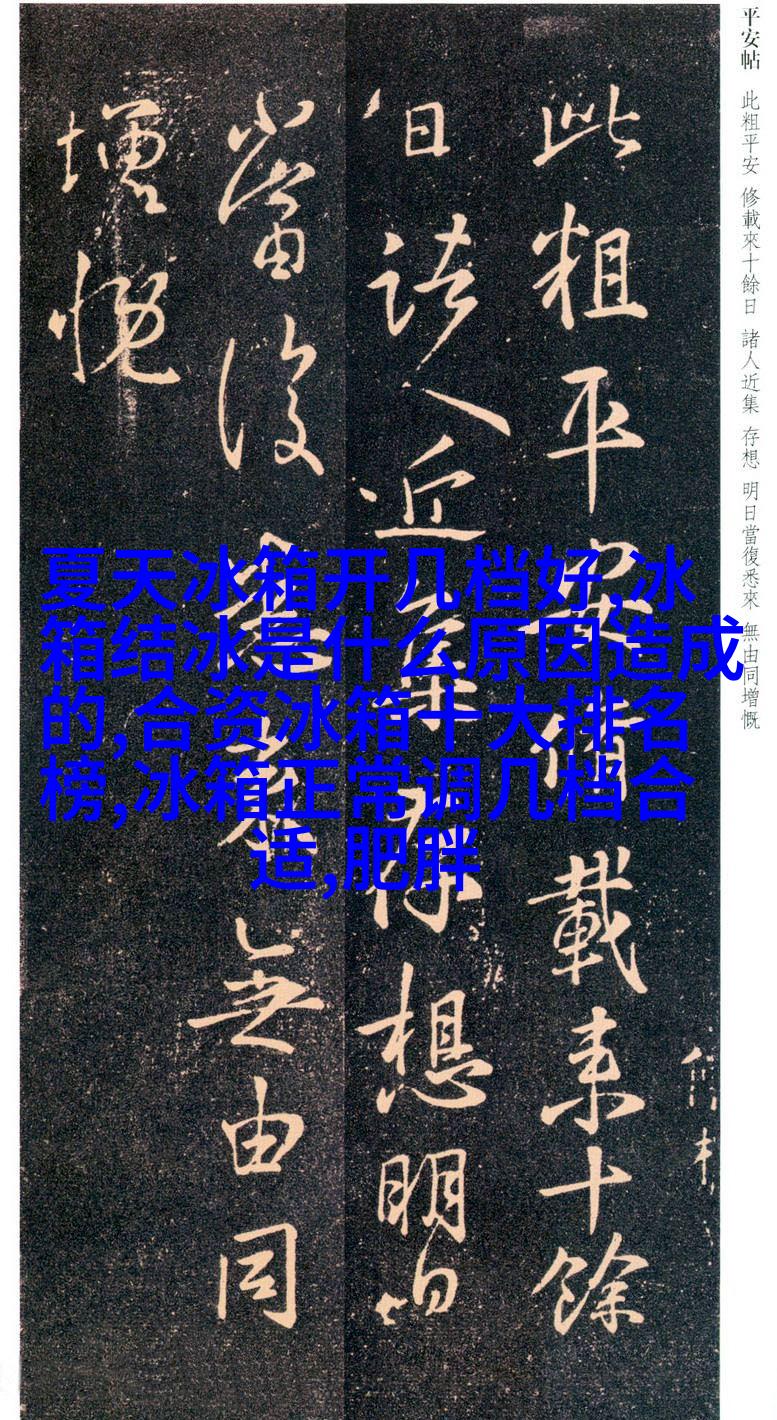 平安帖 此粗平安 修載來十餘日 諸人近集 存想 明日當復悉來 無由同增慨
此粗平安脩載来十餘
日諸人近集存想明日
當復悉来無由同
增慨
夏天冰箱开几档好,冰
箱结冰是什么原因造成
的,合资冰箱十大排名
榜,冰箱正常调几档合
适,肥胖